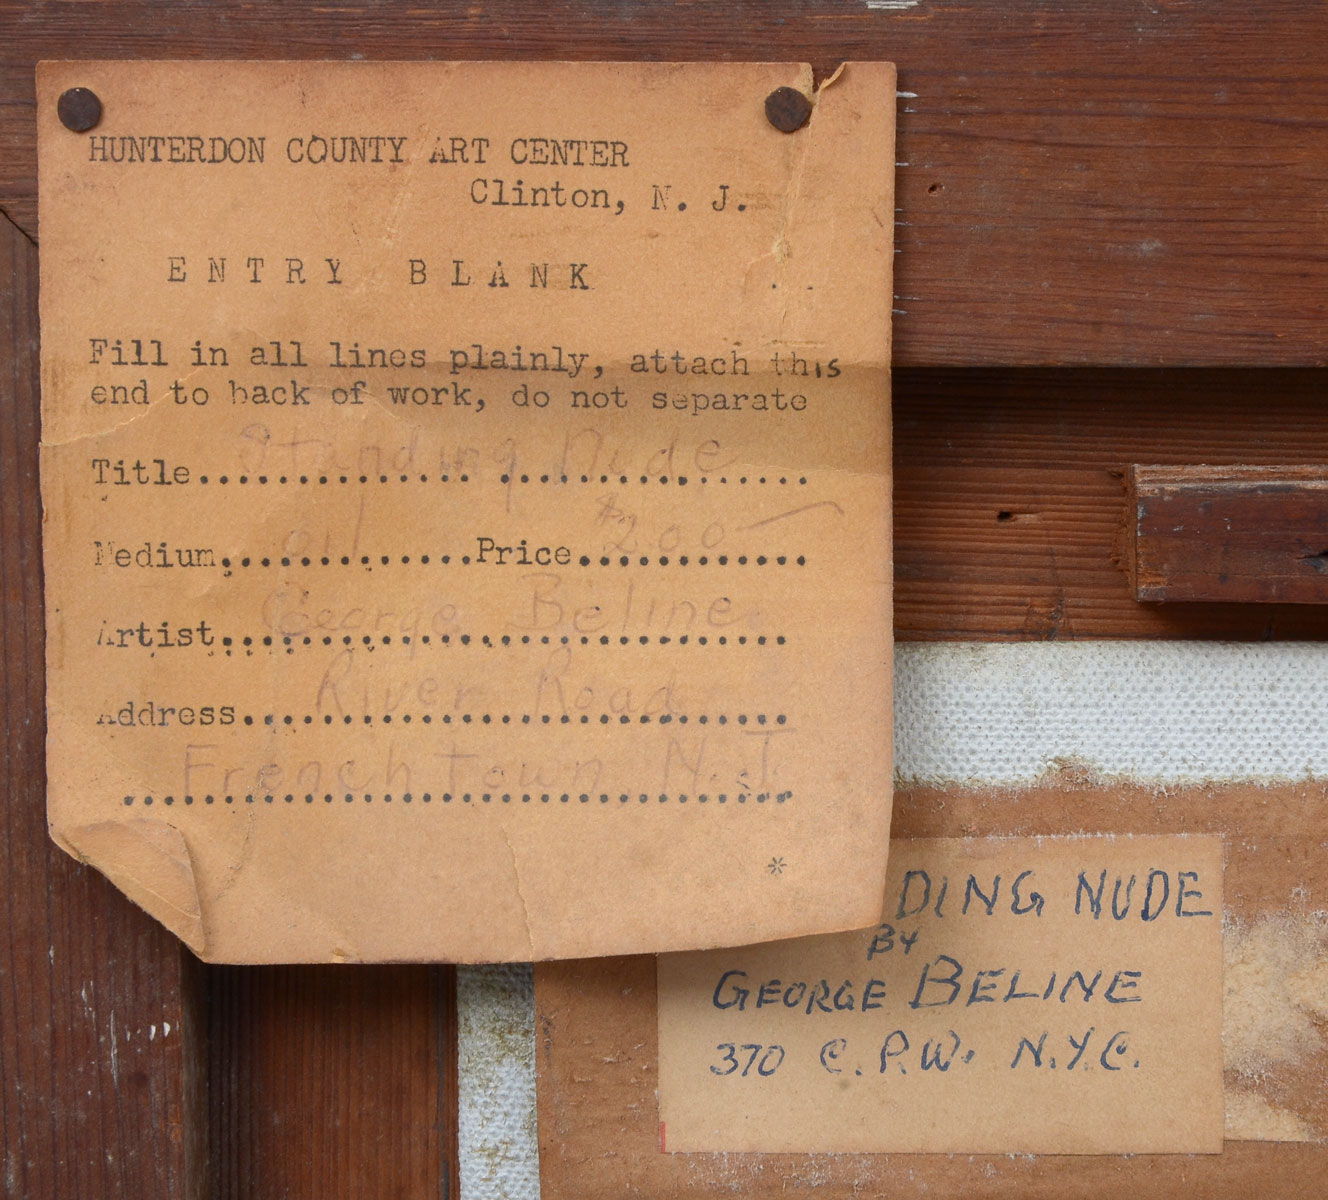 HUNTERDON COUNTY ART CENTER
Clinton, N. J.
ENTRY BLANK
Fill in all lines plainly, attach this
end to back of work, do not separate
Title.......Standing Nude.......
Medium.......oil.......Price.......$200.......
Artist.......George Beline.......
Address.......River Road.......
.......Frenchtown N.J.......
*
DING NUDE
BY
GEORGE BELINE
370 C.P.W. N.Y.C.